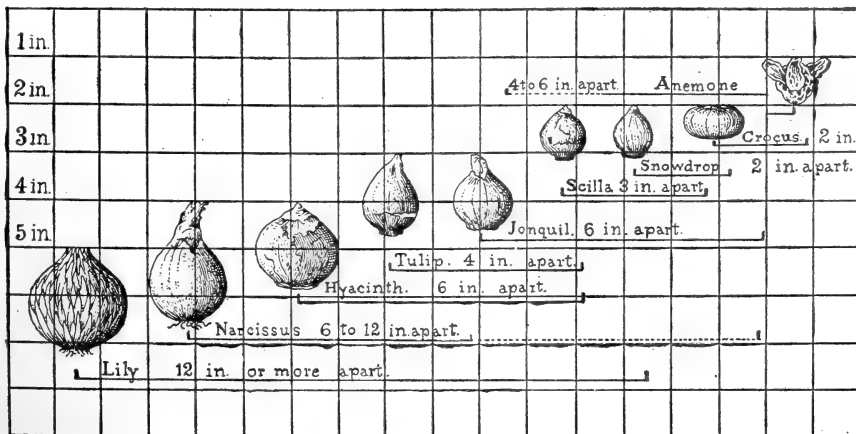 1 in.
2 in.
4 to 6 in. apart. Anemone
3 in.
Crocus. 2 in.
Snowdrop 2 in. apart.
4 in.
Scilla 3 in. apart.
5 in.
Jonquil. 6 in. apart.
Tulip. 4 in. apart.
Hyacinth. 6 in. apart.
Narcissus 6 to 12 in. apart.
Lily 12 in. or more apart.